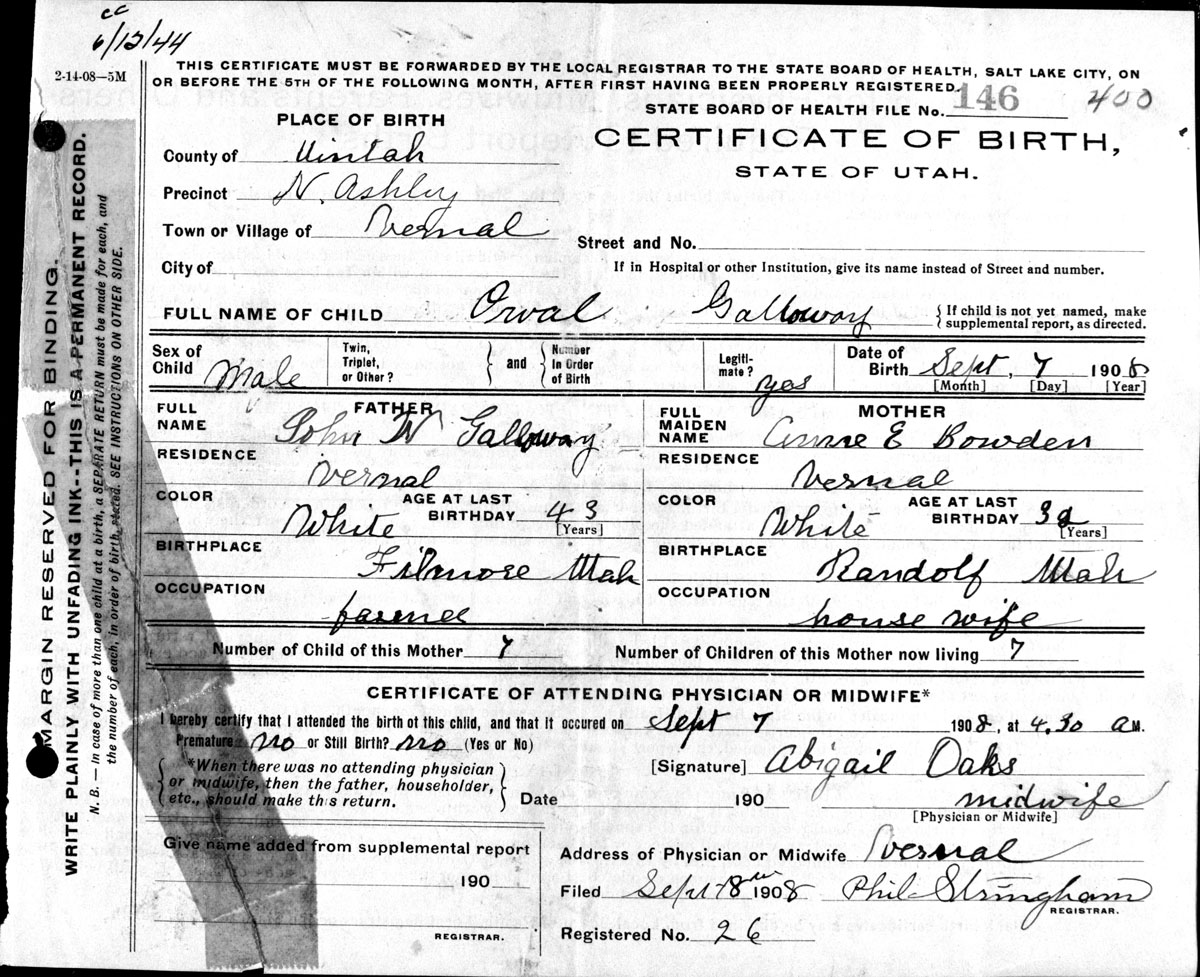 cc
6/13/44
2-14-08—5M
THIS CERTIFICATE MUST BE FORWARDED BY THE LOCAL REGISTRAR TO THE STATE BOARD OF HEALTH, SALT LAKE CITY, ON
OR BEFORE THE 5TH OF THE FOLLOWING MONTH, AFTER FIRST HAVING BEEN PROPERLY REGISTERED.
STATE BOARD OF HEALTH FILE No. 146 400
PLACE OF BIRTH
CERTIFICATE OF BIRTH,
STATE OF UTAH.
County of Uintah
Precinct N. Ashley
Town or Village of Vernal
Street and No.
City of
If in Hospital or other Institution, give its name instead of Street and number.
FULL NAME OF CHILD Orval Galloway { If child is not yet named, make
supplemental report, as directed.
Sex of Child Male Twin, Triplet, or Other? } and { Number In Order of Birth Legiti- mate? yes Date of Birth Sept, 7 1908
[Month] [Day] [Year]
FATHER
FULL NAME John W Galloway
RESIDENCE
Vernal
COLOR White AGE AT LAST BIRTHDAY 43
[Years]
BIRTHPLACE
Filmore Utah
OCCUPATION
farmer
MOTHER
FULL MAIDEN NAME Annie E Bowden
RESIDENCE
Vernal
COLOR White AGE AT LAST BIRTHDAY
[Years]
BIRTHPLACE
Randolf Utah
OCCUPATION
house wife
Number of Child of this Mother 7 Number of Children of this Mother now living 7
CERTIFICATE OF ATTENDING PHYSICIAN OR MIDWIFE*
I hereby certify that I attended the birth of this child, and that it occured on Sept 7 1908, at 4.30 a M.
Premature no or Still Birth? no (Yes or No)
{ *When there was no attending physician
or midwife, then the father, householder,
etc., should make this return. }
[Signature] Abigail Oaks
Date 190 midwife
[Physician or Midwife]
Give name added from supplemental report
190
REGISTRAR.
Address of Physician or Midwife Vernal
Filed Sept 8 1908 Phil Stringham
REGISTRAR.
Registered No. 26
MARGIN RESERVED FOR BINDING.
WRITE PLAINLY WITH UNFADING INK--THIS IS A PERMANENT RECORD.
N. B. — In case of more than one child at a birth, a SEPARATE RETURN must be made for each, and
the number of each, in order of birth, stated. SEE INSTRUCTIONS ON OTHER SIDE.